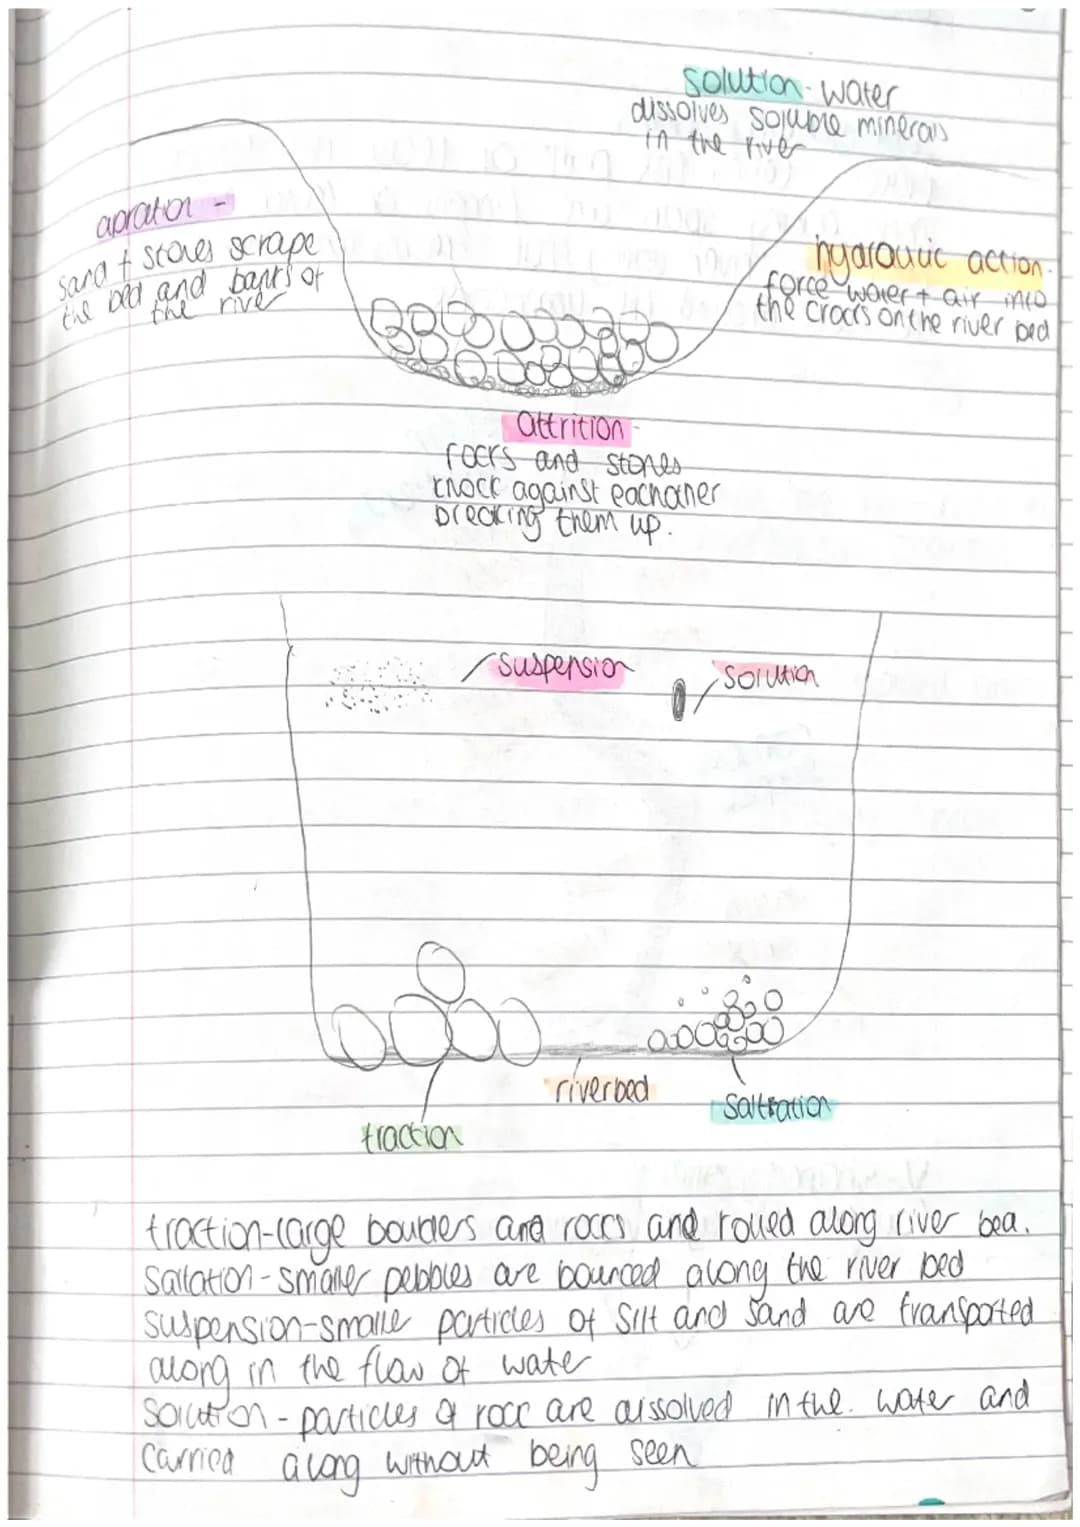 solution - water
dissolves soluble minerals
in the river
apration -
sand + stones scrape
the bed and banks of
the river
hydraulic action -
force water + air into
the cracks on the river bed
attrition -
rocks and stones
knock against eachother
breaking them up.
suspension
solution
riverbed
Saltration
traction
traction - large boulders and rocks and rolled along river bed.
Saltation - smaller pebbles are bounced along the river bed
suspension - smalle particles of silt and sand are transported
along in the flow of water
Solution - particles of rock are dissolved in the. water and
carried along without being seen